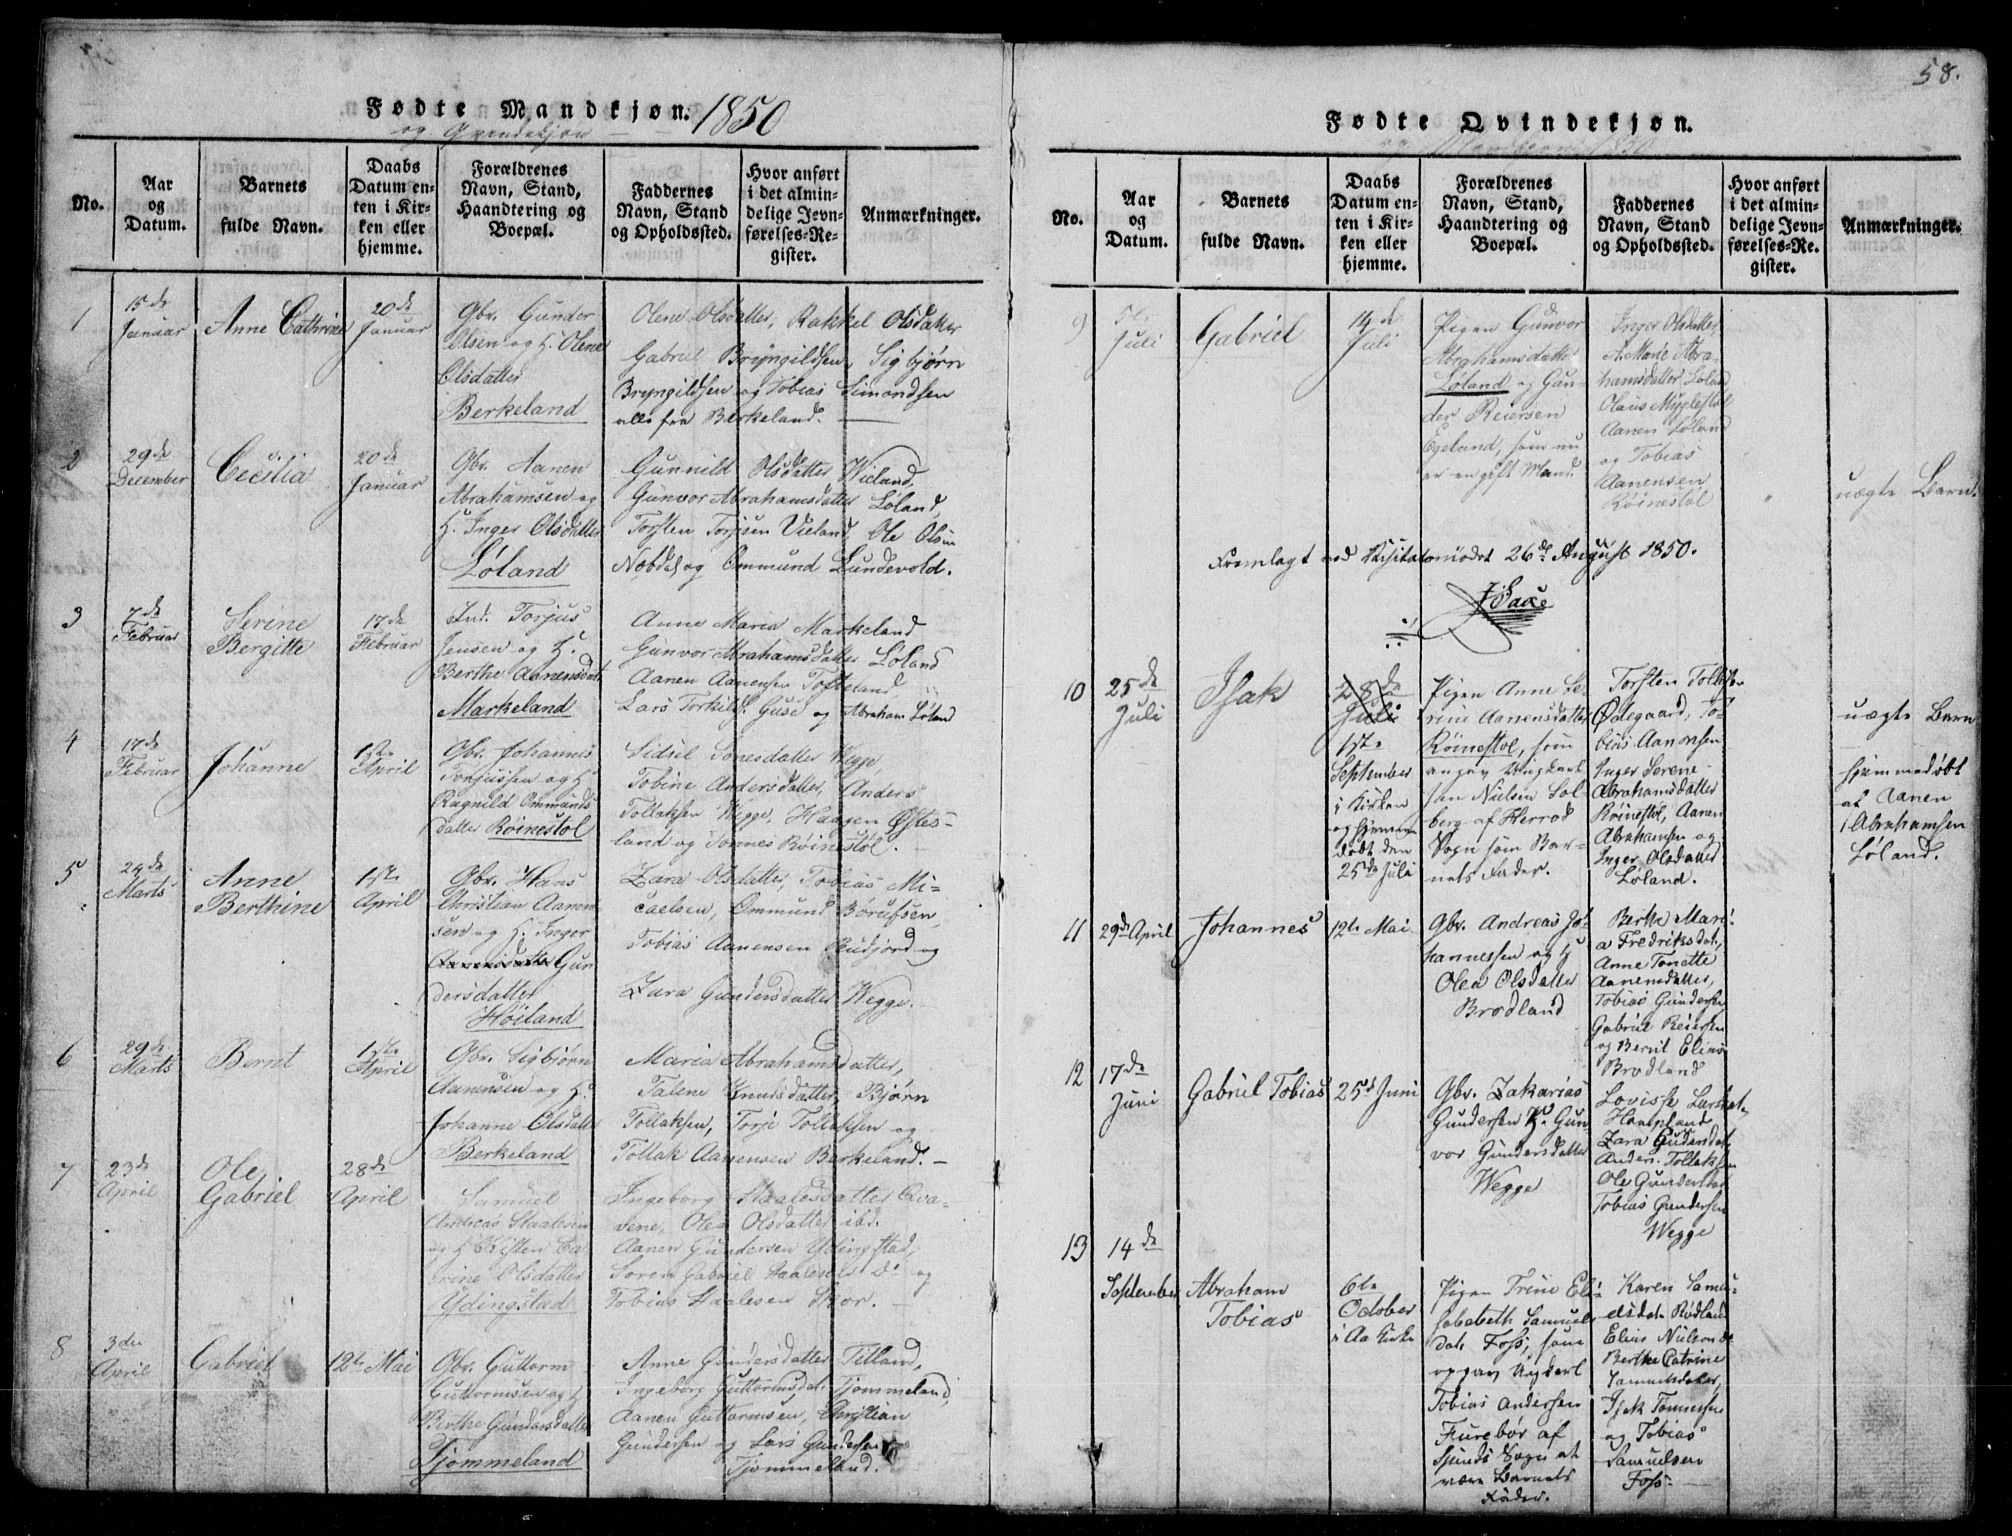 58.
Fødte Mandkjøn. 1850
og Qvindekjøn
No.
Aar
og
Datum.
Barnets
fulde Navn.
Daabs
Datum en-
ten i Kir-
ken eller
hjemme.
Forældrenes
Navn, Stand,
Haandtering og
Boepæl.
Faddernes
Navn, Stand
og Opholdssted.
Hvor anført
i det almin-
delige Jevn-
førelses-Re-
gister.
Anmærkninger.
1
15de
Januar
Anne Cathrine
20de
Januar
Gbr. Gunder
Olsen og H. Olene
Olsdatter
Berkeland
Olene Olsdatter, Rakkel Olsdatter
Gabriel Bryngildsen, Sigbjørn
Bryngildsen og Tobias Simondsen
alle fra Berkeland.
2
29de
December
Cecilia
20de
Januar
Gbr. Aanen
Abrahamsen og
H. Inger Olsdatter
Løland
Gunnild Olsdatter Wieland,
Gunvor Abrahamsdatter Løland,
Torsten Torjusen Vieland, Ole Olsen
Nobdal og Ommund Lundevold.
3
7de
Februar
Serine
Bergitte
17de
Februar
Ind. Torjus
Jensen og H.
Berthe Aanensdat.
Markeland
Anne Maria Markeland
Gunvor Abrahamsdatter Løland
Aanen Aanensen Tofteland
Lars Torkilds. Guse og Abraham Løland
4
17de
Februar
Johanne
1ste
April
Gbr. Johannes
Torjussen og H.
Ragnild Ommunds
datter Röinestøl
Sidsel Tonesdatter Wegge,
Tobine Andersdatter, Anders
Tollaksen Wegge, Haagen Øftes-
land og Tønnes Röinestøl.
5
24de
Marts
Anne
Berthine
1ste
April
Gbr. Hans
Christian Aanen
sen og H. Inger
Gun
dersdatter
Höiland
Zara Olsdatter, Tobias Mi-
caelsen, Ommund Børufsen,
Tobias Aanensen Rudjord og
Zara Gundersdatter Wegge.
6
29de
Marts
Bernt
1ste
April
Gbr. Sigbjørn
Aanensen og H.
Johanne Olsdatter
Berkeland
Maria Abrahamsdatter,
Talene Knudsdatter, Bjørn
Tollaksen, Torje Tollaksen og
Tollak Aanensen Berkeland.
7
23de
April
Ole
Gabriel
28de
April
Samuel
Andreas Staalesen
og H. Kirsten Ca
trine Olsdatter
Ydingstad
Ingeborg Staalesdatter Qva-
sene, Olea Olsdatter ibd.
Aanen Gundersen Ydingstad,
Søren Gabriel Staalesen do og
Tobias Staalesen Skor.
8
3die
April
Gabriel
12te Mai
Gbr. Guttorm
Guttormsen og H
Berthe Gundersdatter
Tjommeland
Anne Gundersdatter Tilland,
Ingeborg Guttormsdat. Tjommeland,
Aanen Guttormsen, Christian
Gundersen og Lars Gundersen
Tjommeland.
Fødte Qvindekjøn.
og Mandkjøn 1850
No.
Aar
og
Datum.
Barnets
fulde Navn.
Daabs
Datum en-
ten i Kir-
ken eller
hjemme.
Forældrenes
Navn, Stand,
Haandtering og
Boepæl.
Faddernes
Navn, Stand
og Opholdssted.
Hvor anført
i det almin-
delige Jevn-
førelses-Re-
gister.
Anmærkninger.
9
5te
Juli
Gabriel
14de
Juli
Pigen Gunvor
Abrahamsdatter
Løland og Gun-
der Reiersen
Egeland, som nu
er en gift Mand.
Inger Olsdatter
A. Marie Abra-
hamsdatter Løland
Olaus Myglestøl
Aanen Løland
og Tobias
Aanensen
Röinestøl
uægte Barn.
Fremlagt ved Visitatsmødet 26de August 1850.
JSaxe
10
25de
Juli
Isak
28de
Juli
1ste
September
i Kirken
og hjemme
døbt den
25de Juli
Pigen Anne Se-
rine Aanensdatter
Röinestøl, som
angav Ungkarl
Jan Nielsen Løl-
berg af Herred
Sogn som Bar-
nets Fader.
Torsten Tollefs.
Ødegaard, To-
bias Aanensen
Inger Serene
Abrahamsdatter
Röinestøl, Aanen
Abrahamsen og
Inger Olsdatter
Løland.
uægte Barn
hjemmedøbt
af Aanen
Abrahamsen
Løland.
11
29de April
Johannes
12te Mai
Gbr. Andreas Jo-
hannessen og H
Olea Olsdatter
Brødland
Berthe Mari-
a Fredriksdat.,
Anne Tonette
Aanensdatter,
Tobias Gundersen
Gabriel Reiersen
og Bernt Elias
Brødland
12
17de
Juni
Gabriel Tobias
25de Juni
Gbr. Zakarias
Gundersen H. Gun
vor Gundersdatter
Wegge
Lovisse Larsdat.
Haapland
Zara Gundersdat
Anders Tollaksen
Ole Gundersen
Tobias Gundersen
Wegge
13
14de
September
Abraham
Tobias
6te
October
i Aa Kirke
Pigen Trine Eli-
sabeth Samuels
dat. Foss, som
opgav Ungkarl
Tobias Andersen
Furebør af
Spinds Sogn at
være Barnets
Fader.
Karen Samu-
elsdat. Rødland
Elias Nielsen do
Berthe Catrine
Samuelsdatter,
Isak Tønnessen
og Tobias
Samuelsen
Foss.